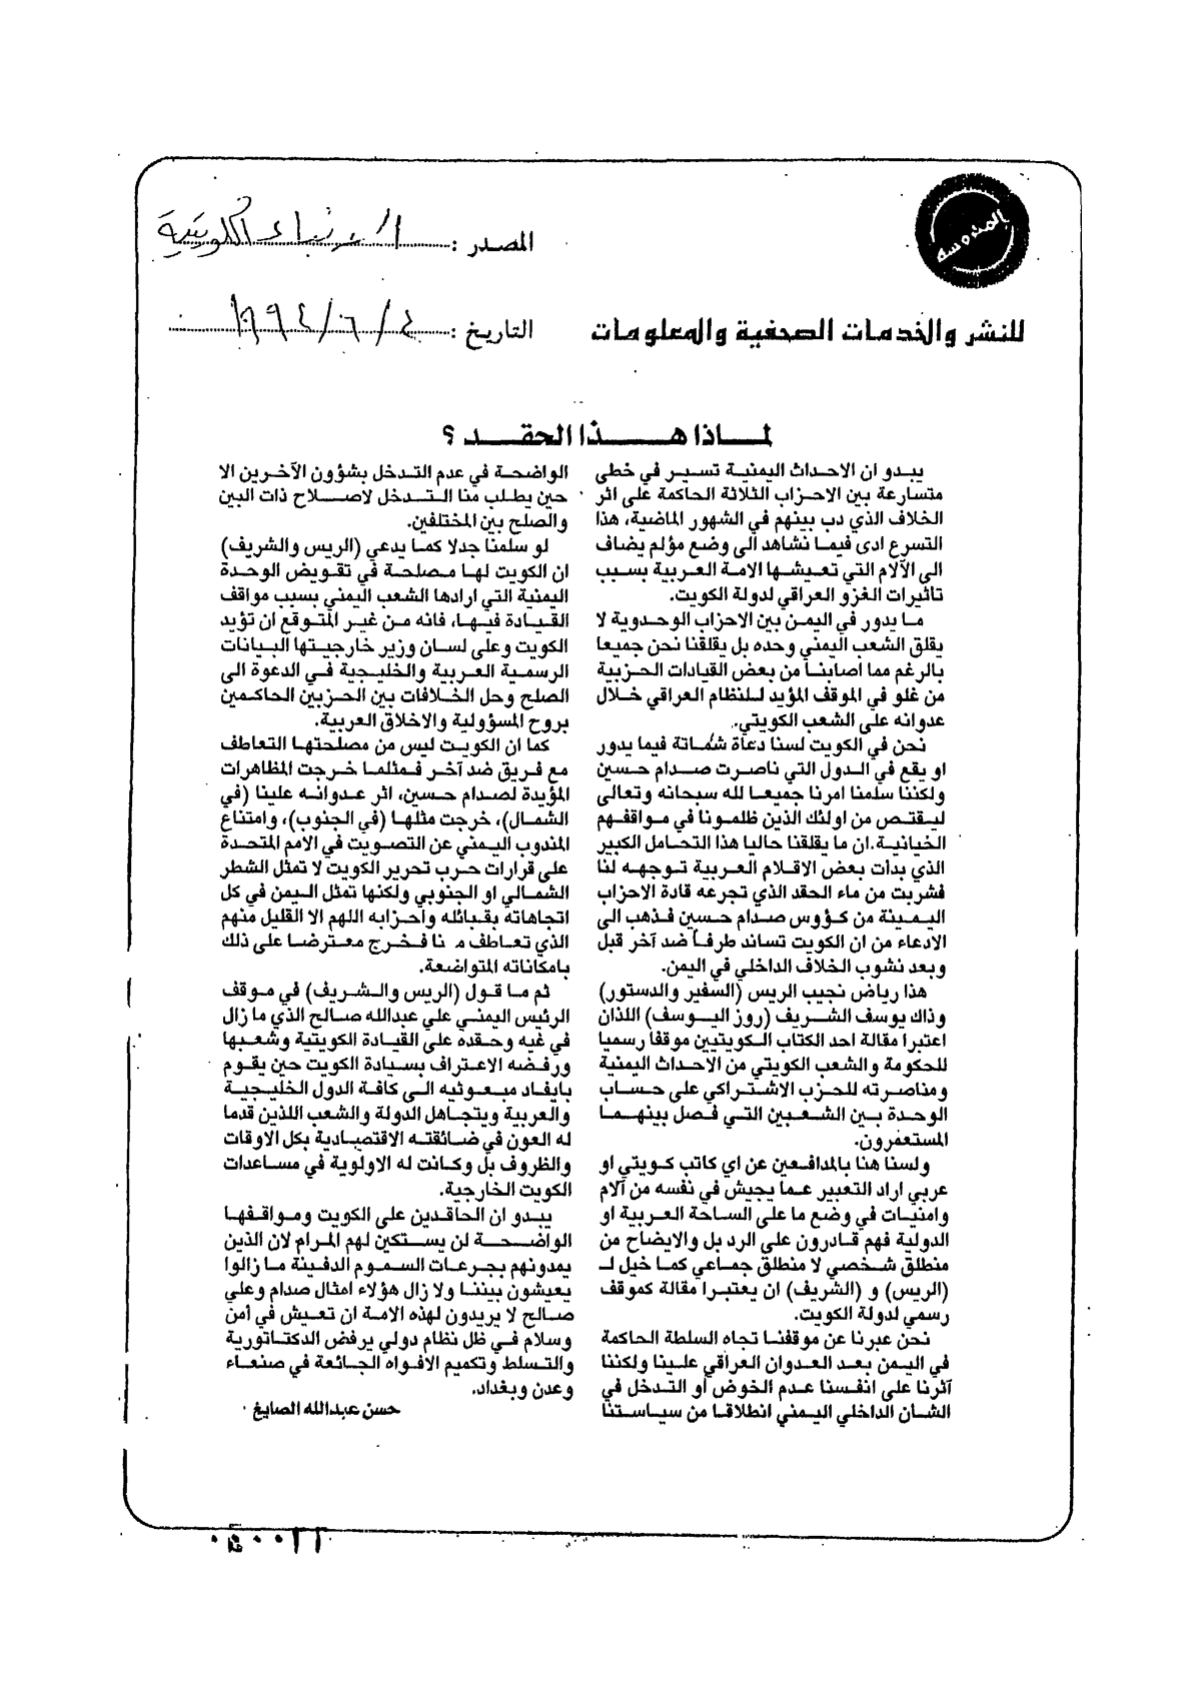 المحروسة
المصدر : الانباء الكويتية
للنشر والخدمات الصحفية والمعلومات
التاريخ : ٤ / ٦ / ١٩٩٤
لماذا هذا الحقد ؟
يبدو ان الاحداث اليمنية تسير في خطى
متسارعة بين الاحزاب الثلاثة الحاكمة على اثر
الخلاف الذي دب بينهم في الشهور الماضية، هذا
التسرع ادى فيما نشاهد الى وضع مؤلم يضاف
الى الآلام التي تعيشها الامة العربية بسبب
تاثيرات الغزو العراقي لدولة الكويت.
ما يدور في اليمن بين الاحزاب الوحدوية لا
يقلق الشعب اليمني وحده بل يقلقنا نحن جميعا
بالرغم مما اصابنا من بعض القيادات الحزبية
من غلو في الموقف المؤيد للنظام العراقي خلال
عدوانه على الشعب الكويتي.
نحن في الكويت لسنا دعاة شماتة فيما يدور
او يقع في الدول التي ناصرت صدام حسين
ولكننا سلمنا امرنا جميعا لله سبحانه وتعالى
ليقتص من اولئك الذين ظلمونا في مواقفهم
الخيانية. ان ما يقلقنا حاليا هذا التحامل الكبير
الذي بدات بعض الاقلام العربية توجهه لنا
فشربت من ماء الحقد الذي تجرعه قادة الاحزاب
اليمينة من كؤوس صدام حسين فذهب الى
الادعاء من ان الكويت تساند طرفاً ضد آخر قبل
وبعد نشوب الخلاف الداخلي في اليمن.
هذا رياض نجيب الريس (السفير والدستور)
وذاك يوسف الشريف (روز اليوسف) اللذان
اعتبرا مقالة احد الكتاب الكويتيين موقفا رسميا
للحكومة والشعب الكويتي من الاحداث اليمنية
ومناصرته للحزب الاشتراكي على حساب
الوحدة بين الشعبين التي فصل بينهما
المستعمرون.
ولسنا هنا بالمدافعين عن اي كاتب كويتي او
عربي اراد التعبير عما يجيش في نفسه من آلام
وامنيات في وضع ما على الساحة العربية او
الدولية فهم قادرون على الرد بل والايضاح من
منطلق شخصي لا منطلق جماعي كما خيل لـ
(الريس) و (الشريف) ان يعتبرا مقالة كموقف
رسمي لدولة الكويت.
نحن عبرنا عن موقفنا تجاه السلطة الحاكمة
في اليمن بعد العدوان العراقي علينا ولكننا
آثرنا على انفسنا عدم الخوض أو التدخل في
الشان الداخلي اليمني انطلاقا من سياستنا
الواضحة في عدم التدخل بشؤون الآخرين الا
حين يطلب منا التدخل لاصلاح ذات البين
والصلح بين المختلفين.
لو سلمنا جدلا كما يدعي (الريس والشريف)
ان الكويت لها مصلحة في تقويض الوحدة
اليمنية التي ارادها الشعب اليمني بسبب مواقف
القيادة فيها، فانه من غير المتوقع ان تؤيد
الكويت وعلى لسان وزير خارجيتها البيانات
الرسمية العربية والخليجية في الدعوة الى
الصلح وحل الخلافات بين الحزبين الحاكمين
بروح المسؤولية والاخلاق العربية.
كما ان الكويت ليس من مصلحتها التعاطف
مع فريق ضد آخر فمثلما خرجت المظاهرات
المؤيدة لصدام حسين، اثر عدوانه علينا (في
الشمال)، خرجت مثلها (في الجنوب)، وامتناع
المندوب اليمني عن التصويت في الامم المتحدة
على قرارات حرب تحرير الكويت لا تمثل الشطر
الشمالي او الجنوبي ولكنها تمثل اليمن في كل
اتجاهاته بقبائله واحزابه اللهم الا القليل منهم
الذي تعاطف معنا فخرج معترضا على ذلك
بامكاناته المتواضعة.
ثم ما قول (الريس والشريف) في موقف
الرئيس اليمني علي عبدالله صالح الذي ما زال
في غيه وحقده على القيادة الكويتية وشعبها
ورفضه الاعتراف بسيادة الكويت حين يقوم
بايفاد مبعوثيه الى كافة الدول الخليجية
والعربية ويتجاهل الدولة والشعب اللذين قدما
له العون في ضائقته الاقتصادية بكل الاوقات
والظروف بل وكانت له الاولوية في مساعدات
الكويت الخارجية.
يبدو ان الحاقدين على الكويت ومواقفها
الواضحة لن يستكين لهم المرام لان الذين
يمدونهم بجرعات السموم الدفينة ما زالوا
يعيشون بيننا ولا زال هؤلاء امثال صدام وعلي
صالح لا يريدون لهذه الامة ان تعيش في أمن
وسلام في ظل نظام دولي يرفض الدكتاتورية
والتسلط وتكميم الافواه الجائعة في صنعاء
وعدن وبغداد.
حسن عبدالله الصايغ